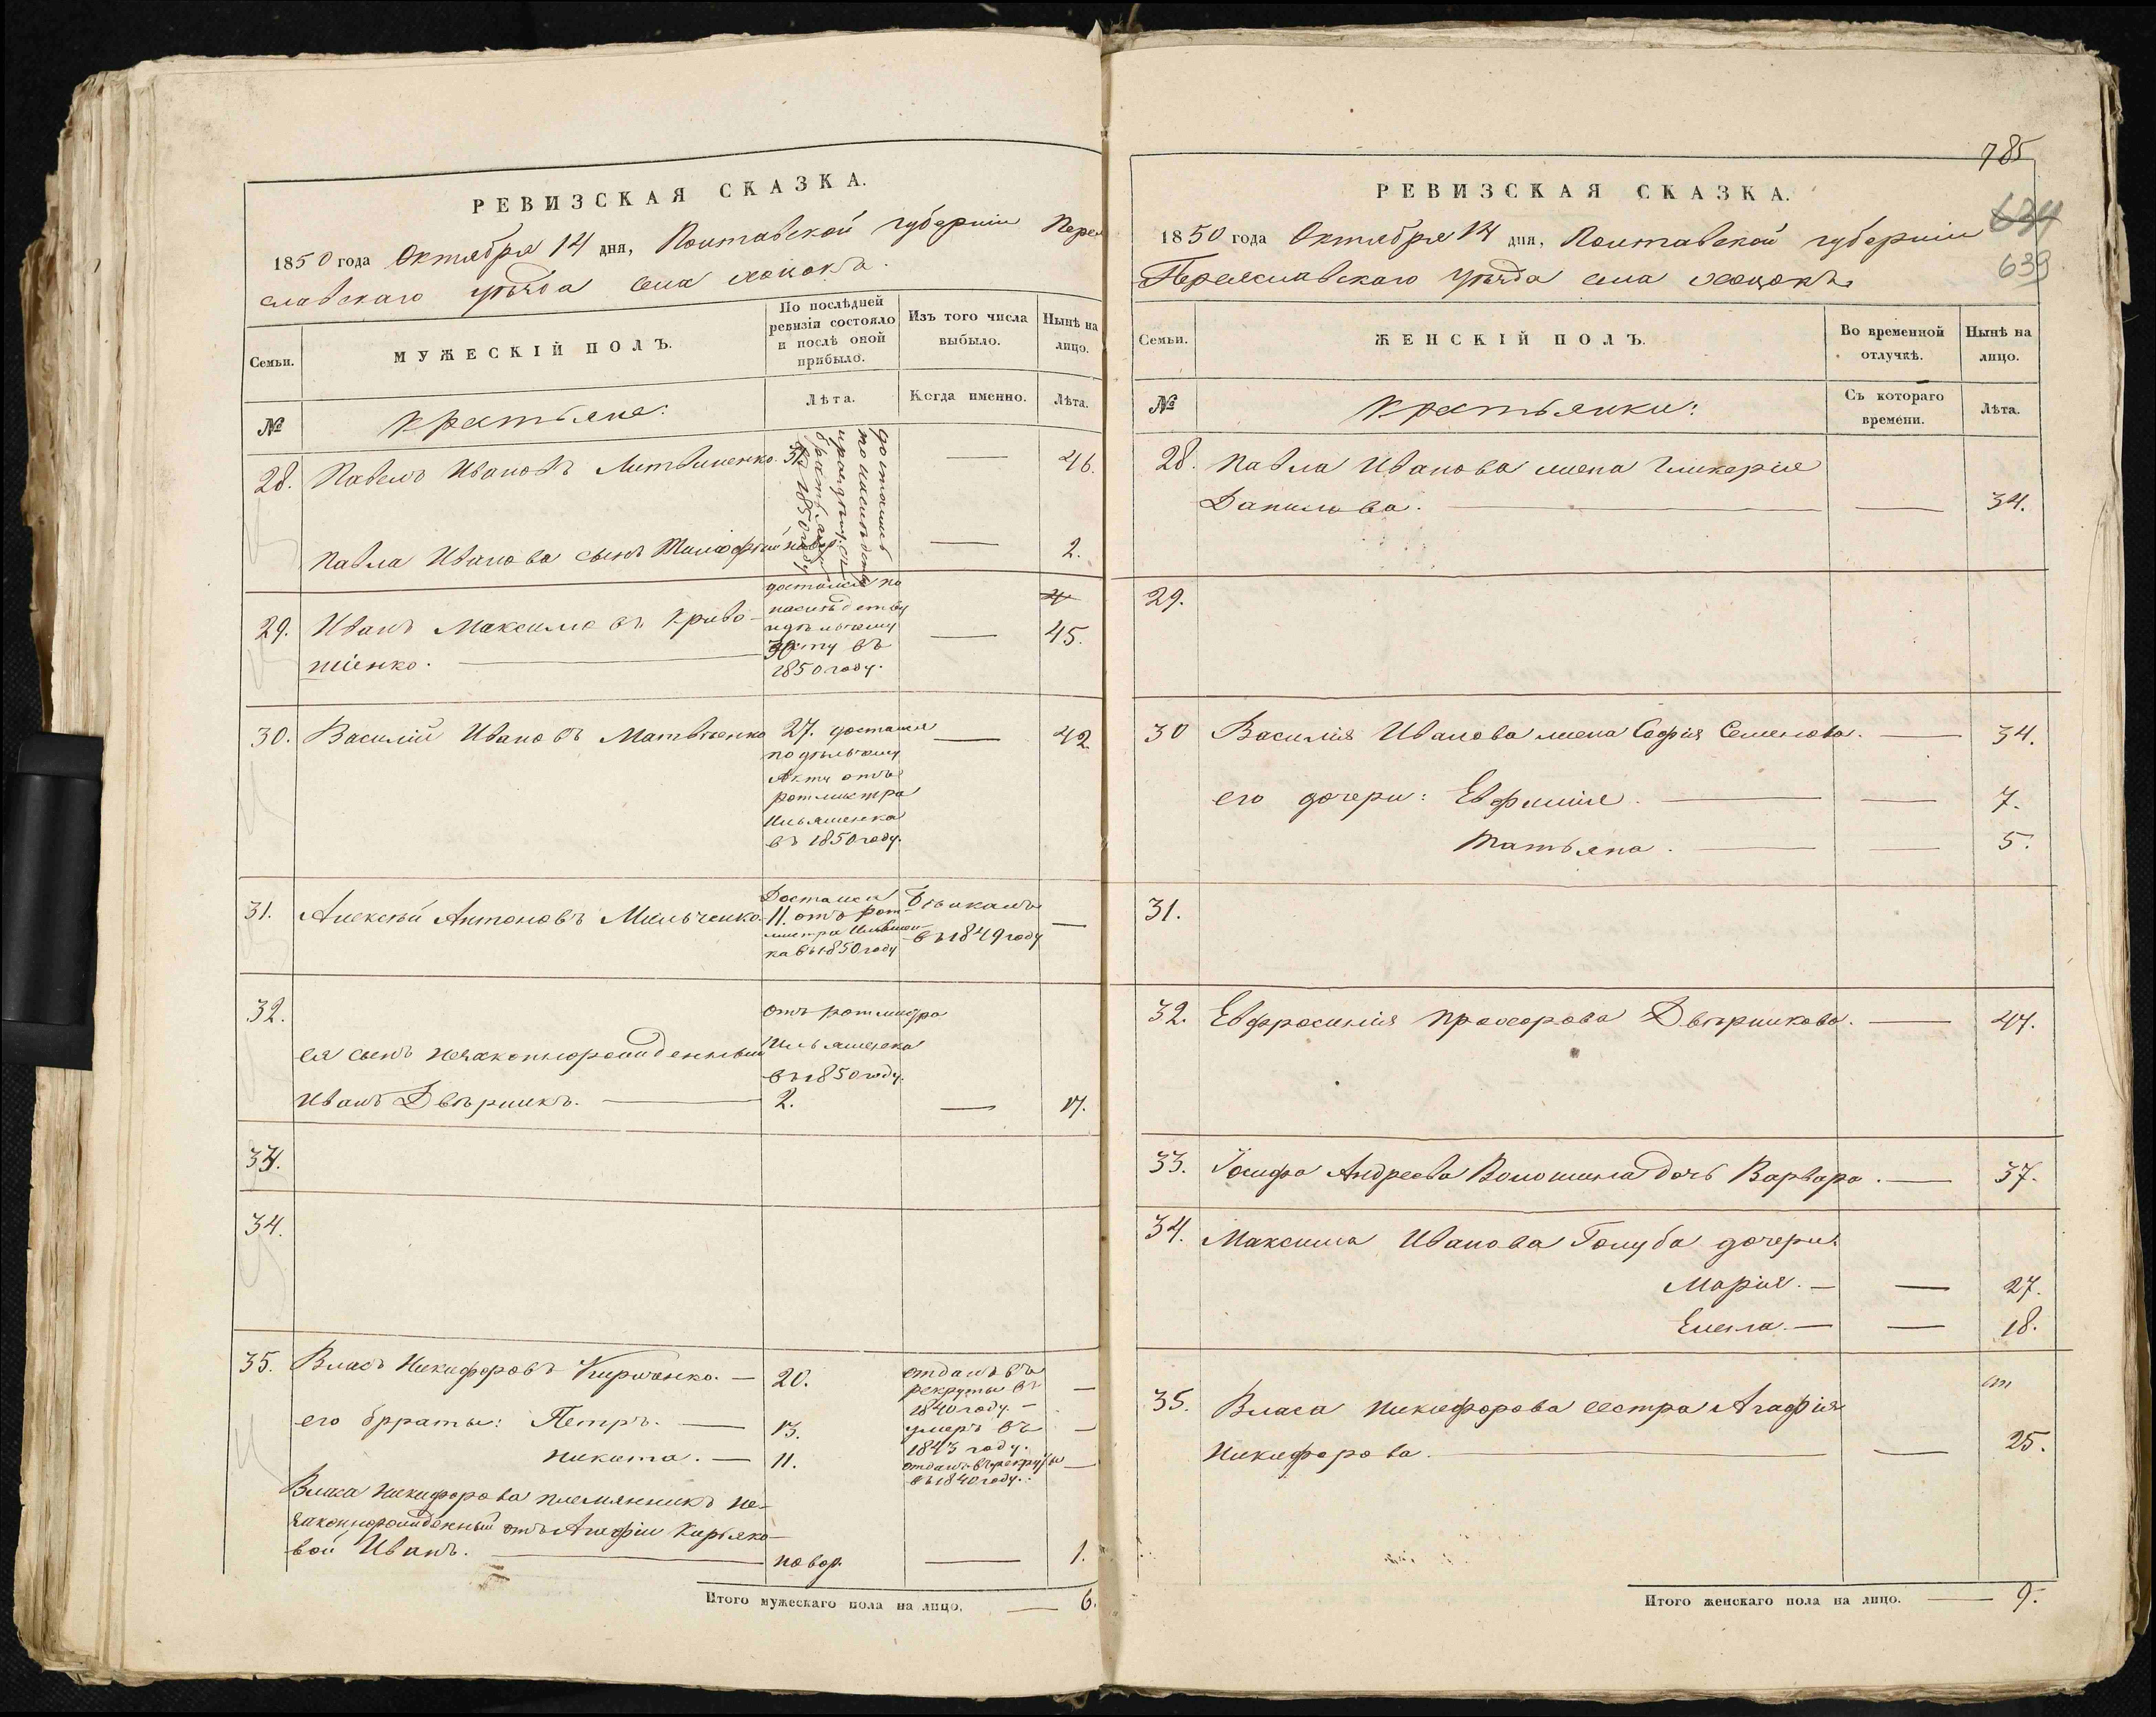 РЕВИЗСКАЯ СКАЗКА.
1850 года Октября 14 дня, Полтавской губерніи Перея
славскаго уѣзда села Хоцокъ.
Семьи.
МУЖЕСКІЙ ПОЛЪ.
По послѣдней
ревизіи состояло
и послѣ оной
прибыло.
Изъ того числа
выбыло.
Нынѣ на
лицо.
№
Крестьяне:
Лѣта.
Когда именно.
Лѣта.
28. Павелъ Ивановъ Литвиненко. 31. — 46.
достались
по наслѣдству
въ 1850 году
Павла Иванова сынъ Тимофѣй новор. — 2.
29. Иванъ Максимовъ Криво-
шіенко. — 30 — 45.
достался по
наслѣдству
въ
1850 году.
30. Василій Ивановъ Матвѣенко 27. достался — 42.
по дѣльчому
Акту отъ
ротмистра
Ильяшенка
въ 1850 году.
31. Алексѣй Антоновъ Мильченко. Достался Бѣжалъ
11. отъ рот- въ 1849 году —
мистра Ильяшен-
ка въ 1850 году
32. отъ ротмистра
ея сынъ незаконнорожденный Ильяшенка
въ 1850 году.
Иванъ Двѣрникъ. — 2. — 17.
33.
34.
35. Власъ Никифоровъ Кирьенко. — 20. отданъ въ
рекруты въ —
1840 году. —
его брраты: Петръ. — 13. умеръ въ —
1843 году.
Никита. — 11. отданъ въ рекруты —
въ 1840 году.
Власа Никифорова племянникъ не-
законнорожденный отъ Агафіи Кирьяко-
вой Иванъ. — новор. — 1.
Итого мужескаго пола на лицо. — 6.
785
634
639
РЕВИЗСКАЯ СКАЗКА.
1850 года Октября 14 дня, Полтавской губерніи
Переяславскаго уѣзда села Хоцокъ.
Семьи.
ЖЕНСКІЙ ПОЛЪ.
Во временной
отлучкѣ.
Нынѣ на
лицо.
№
Крестьянки:
Съ котораго
времени.
Лѣта.
28. Павла Иванова жена Гликерія
Данилова. — — 34.
29.
30 Василія Иванова жена Софія Семенова. — 34.
его дочери: Евфимія. — — 7.
Татьяна. — — 5.
31.
32. Евфросинія Прохорова Двѣрникова. — 47.
33. Іосифа Андреева Волошина дочь Варвара. — 37.
34. Максима Иванова Голуба дочери:
Марія. — — 27.
Елена. — — 18.
35. Власа Никифорова сестра Агафія
Никифорова. — — 25.
Итого женскаго пола на лицо. — 9.